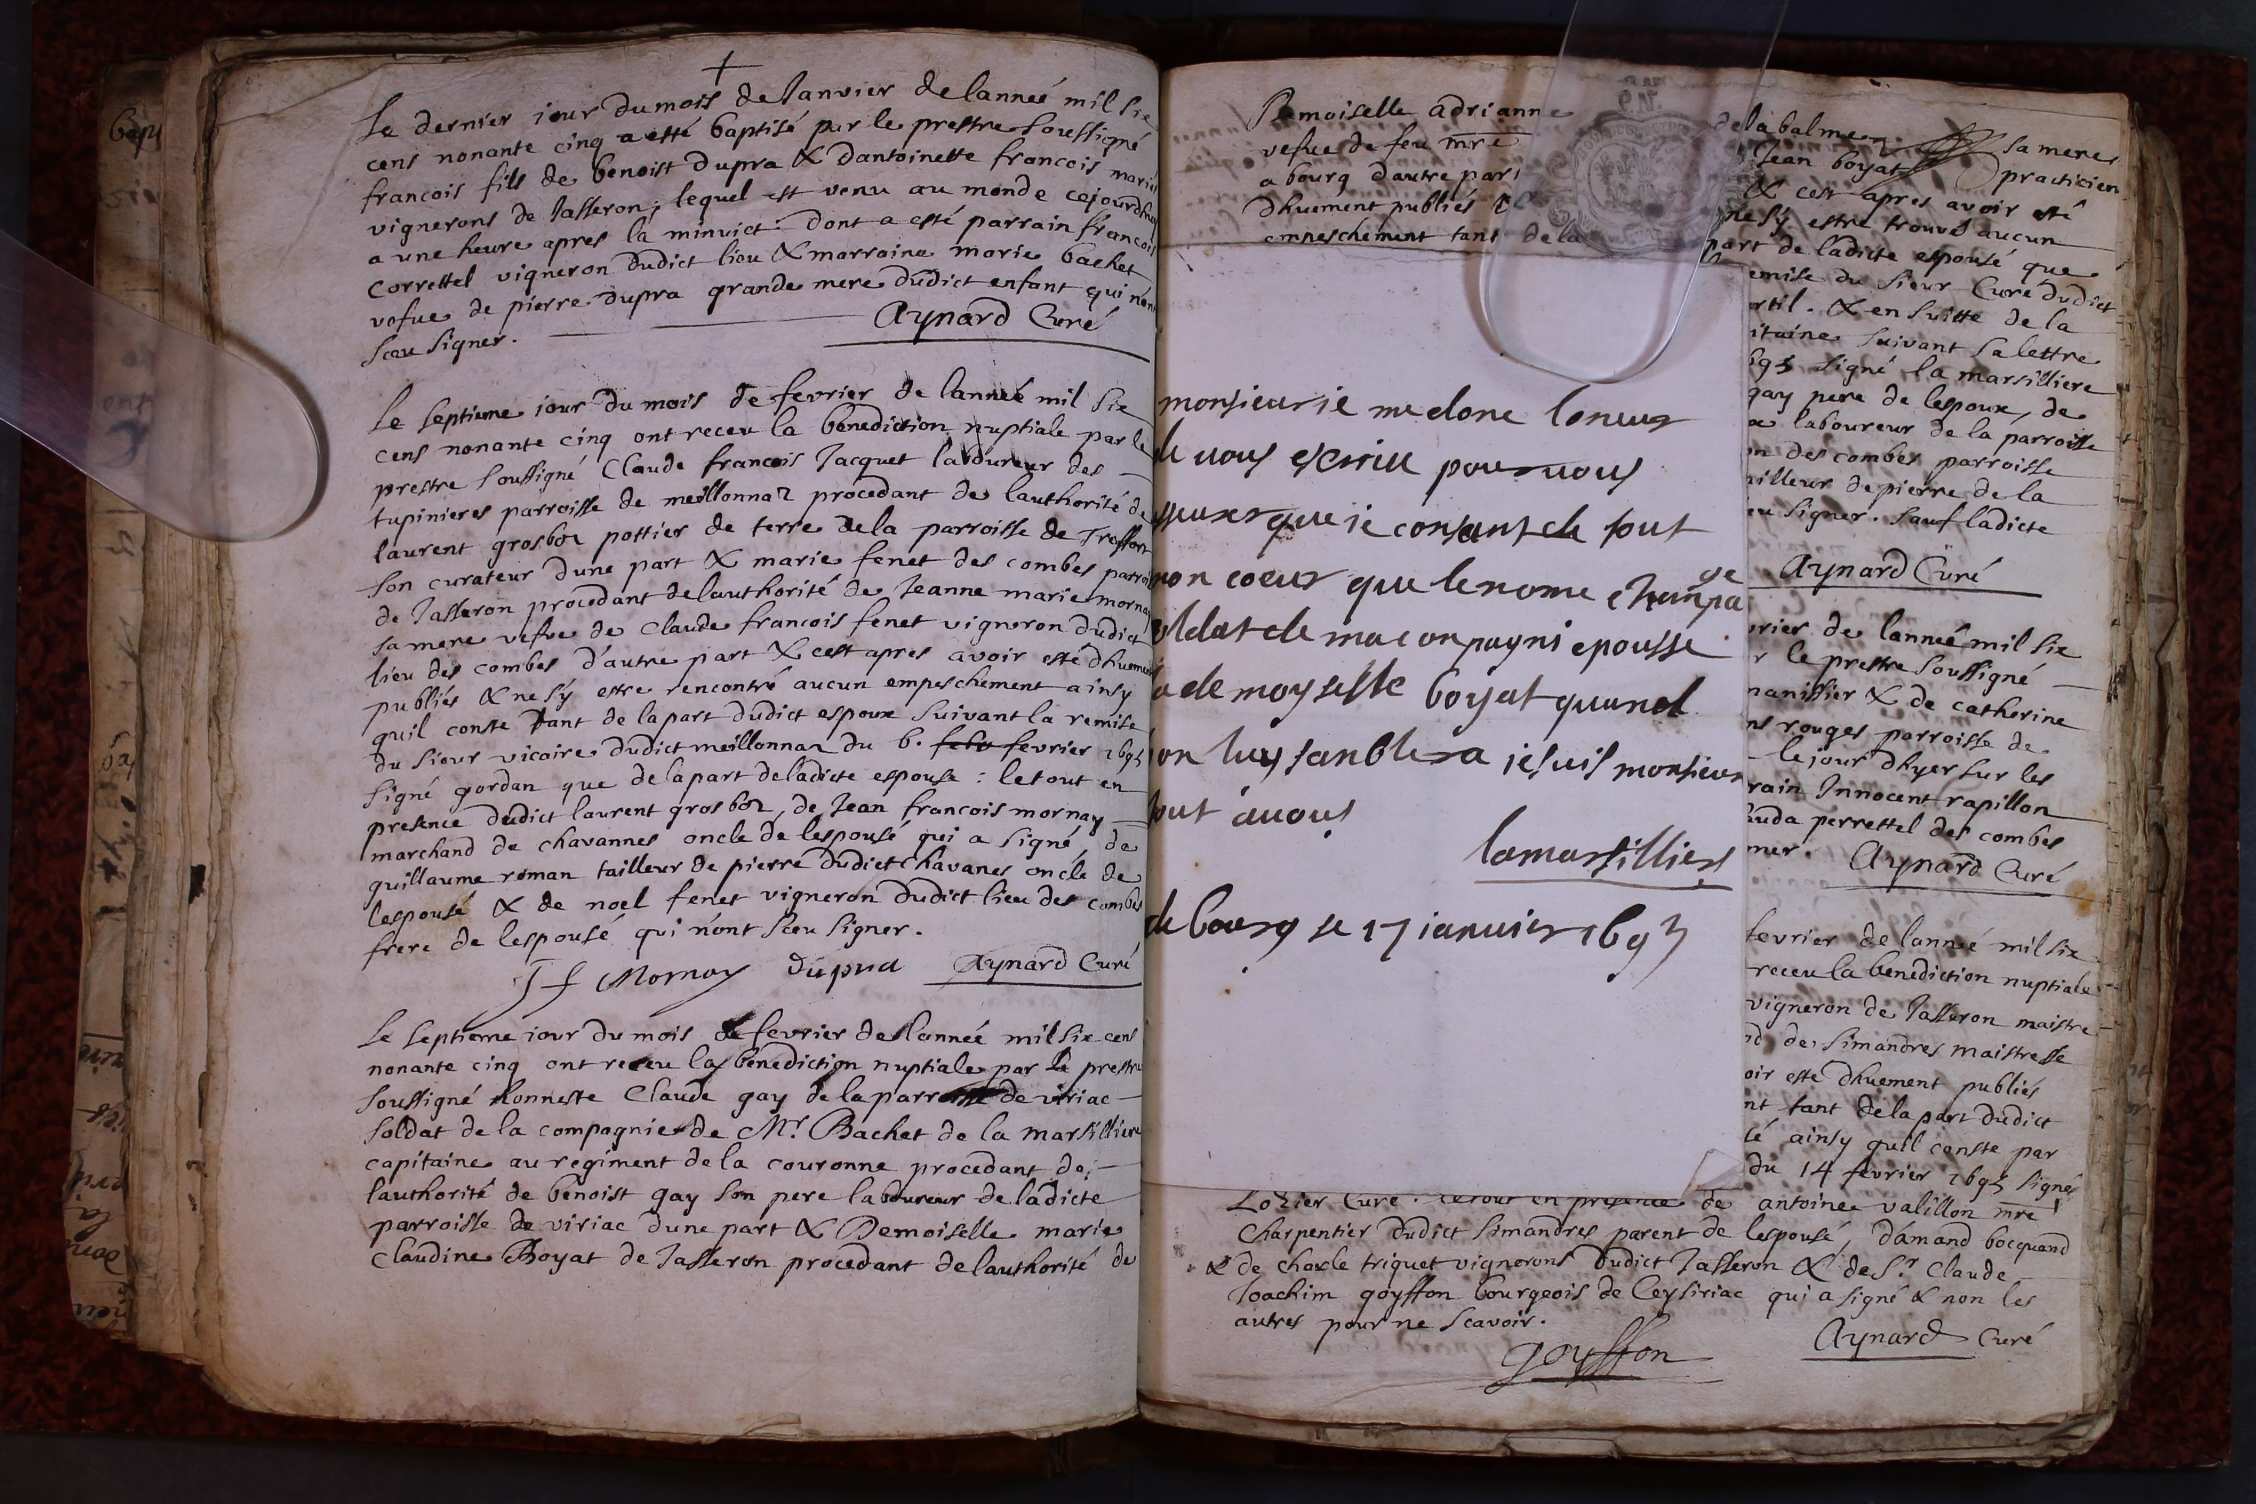 Le dernier iour du mois de Janvier de lanneé mil six
cens nonante cinq a esté baptisé par le prestre soussigné
francois fils de benoist dupra & dantoinette francois mariés
vignerons de Jasseron, lequel est venu au monde cejourdhuy
a une heure apres la minuict : dont a esté parrain francois
Correttel vigneron dudict lieu & marraine marie bachet
vefve de pierre dupra grande mere dudict enfant qui nont
sceu signer.
Aynard Curé
Le septieme iour du mois de fevrier de lanneé mil six
cens nonante cinq ont receu la benediction nuptiale par le
prestre soussigné Claude francois Jacquet laboureur des
tupinieres parroisse de meillonnaz procedant de lauthorité de
laurent grosboz pottier de terre de la parroisse de Treffort
son curateur dune part & marie fenet des combes parroisse
de Jasseron procedant de lauthorité de Jeanne marie mornay
sa mere vefve de Claude francois fenet vigneron dudict
lieu des combes d'autre part & cest apres avoir esté dhuement
publiés & ne sÿ estre rencontré aucun empeschement ainsy
quil conste tant de la part dudict espoux suivant la remise
du sieur vicaire dudict meillonnaz du 6. febv fevrier 1695
signé gordan que de la part de ladicte espouse : le tout en
presence dudict laurent grosboz, de Jean francois mornay
marchand de chavannes oncle de lespousé qui a signé, de
guillaume roman tailleur de pierre dudict Chavanes oncle de
lespousé & de noel fenet vigneron dudict lieu des combes
frere de lespousé qui n'ont sceu signer.
J f Mornay dupra Aynard Curé
Le septieme iour du mois de fevrier de lanneé mil six cens
nonante cinq ont receu la benediction nuptiale par le prestre
soussigné honneste Claude gay de la parroisse de viriac
soldat de la compagnie de Mr Bachet de la marsilliere
capitaine au regiment de la couronne procedant de
lauthorité de benoist gay son pere laboureur de ladicte
parroisse de viriac dune part & Demoiselle marie
Claudine Boyat de Jasseron procedant de lauthorité de
Demoiselle adrianne de la balme sa mere
vefve de feu mre Jean boyat practicien
a bourg d'autre part & cest apres avoir esté
dhuement publiés nesÿ estre trouvé aucun
empeschement tant de la part de ladicte espousé que
emise du sieur Curé dudict
& en suitte de la
suivant sa lettre
signé la marsilliere
gay pere de lespoux, de
laboureur de la parroisse
des combes parroisse
de pierre de la
signer. sauf ladicte
Aynard Curé
monsieur ie me done loneur
de vous escrire pour vous
que ie consant de tout
mon coeur que le nome champa
ge
soldat de ma conpagni epousse
la demoyselle boyat quand
bon luy sanblera ie suis monsieur
tout a vous
lamarsilliere
de bourg se 17 ianvier 1695
de lanneé mil six
le prestre soussigné
& de catherine
rouges parroisse de
le jour dhyer sur les
Innocent rapillon
perrettel des combes
Aynard Curé
fevrier de lanneé mil six
receu la benediction nuptiale
vigneron de Jasseron maistre
de simandres maistresse
esté dhuement publiés
tant de la part dudict
ainsy quil conste par
du 14 fevrier 1695 signé
Lozier Curé. le tout en presence de antoine valillon mre
Charpentier dudict simandres parent de lespousé, d'amand bocquand
& de charle triquet vignerons dudict Jasseron & de Sr. Claude
Joachim goyffon bourgeois de Ceysiriac qui a signé & non les
autres pour ne scavoir.
goyffon Aynard Curé